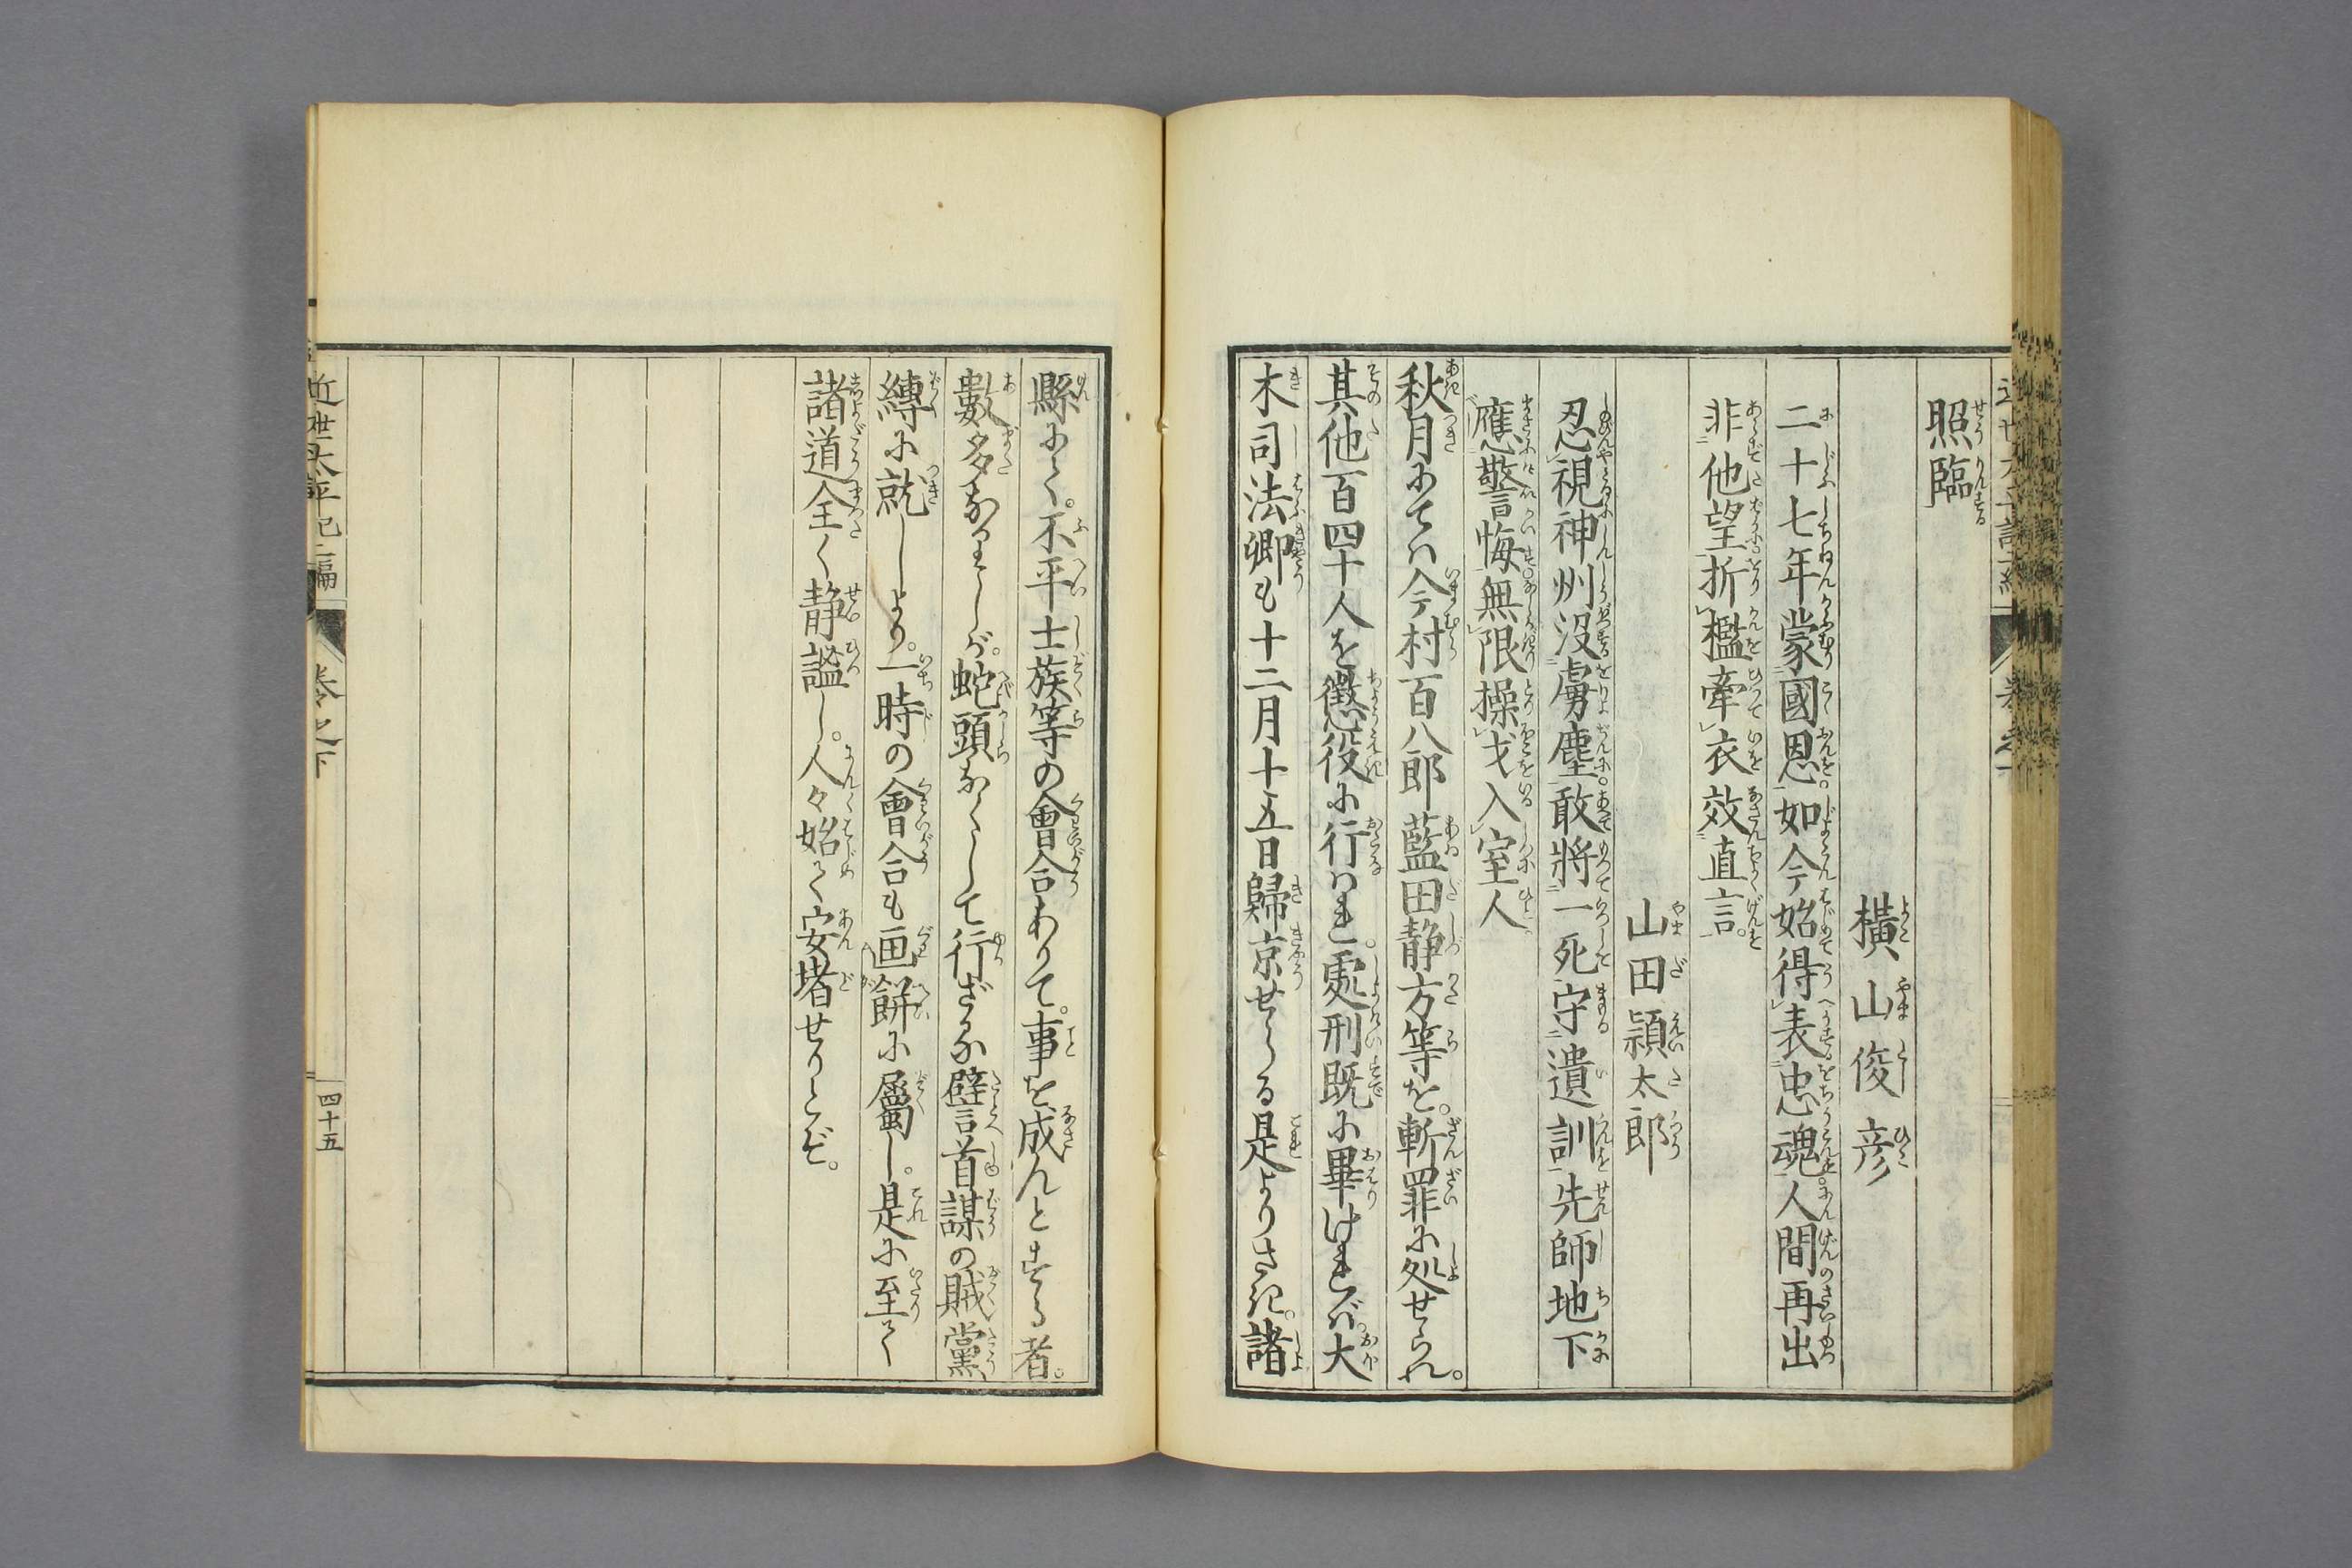 照臨
橫山俊彦
二十七年蒙國恩如今始得表忠魂人間再出
非他望折檻牽衣效直言
山田頴太郎
忍視神州没虜塵敢將一死守遺訓先師地下
應警悔無限操戈入室人
秋月にては今村百八郎藍田静方等を。斬罪に処せられ。
其他百四十人を懲役に行はれ。處刑既に畢けれバ大
木司法卿も十二月十五日歸京せらる是よりさき。諸
縣にて。不平士族等の會合ありて。事を成んとする者。
數多なりしが。蛇頭なくして行ざる譬言首謀の賊黨
縛に就しより。一時の會合も画餅に屬し。是に至て
諸道全く静謐し。人々始て安堵せりとぞ。
近世太平記二編
卷之下
四十五